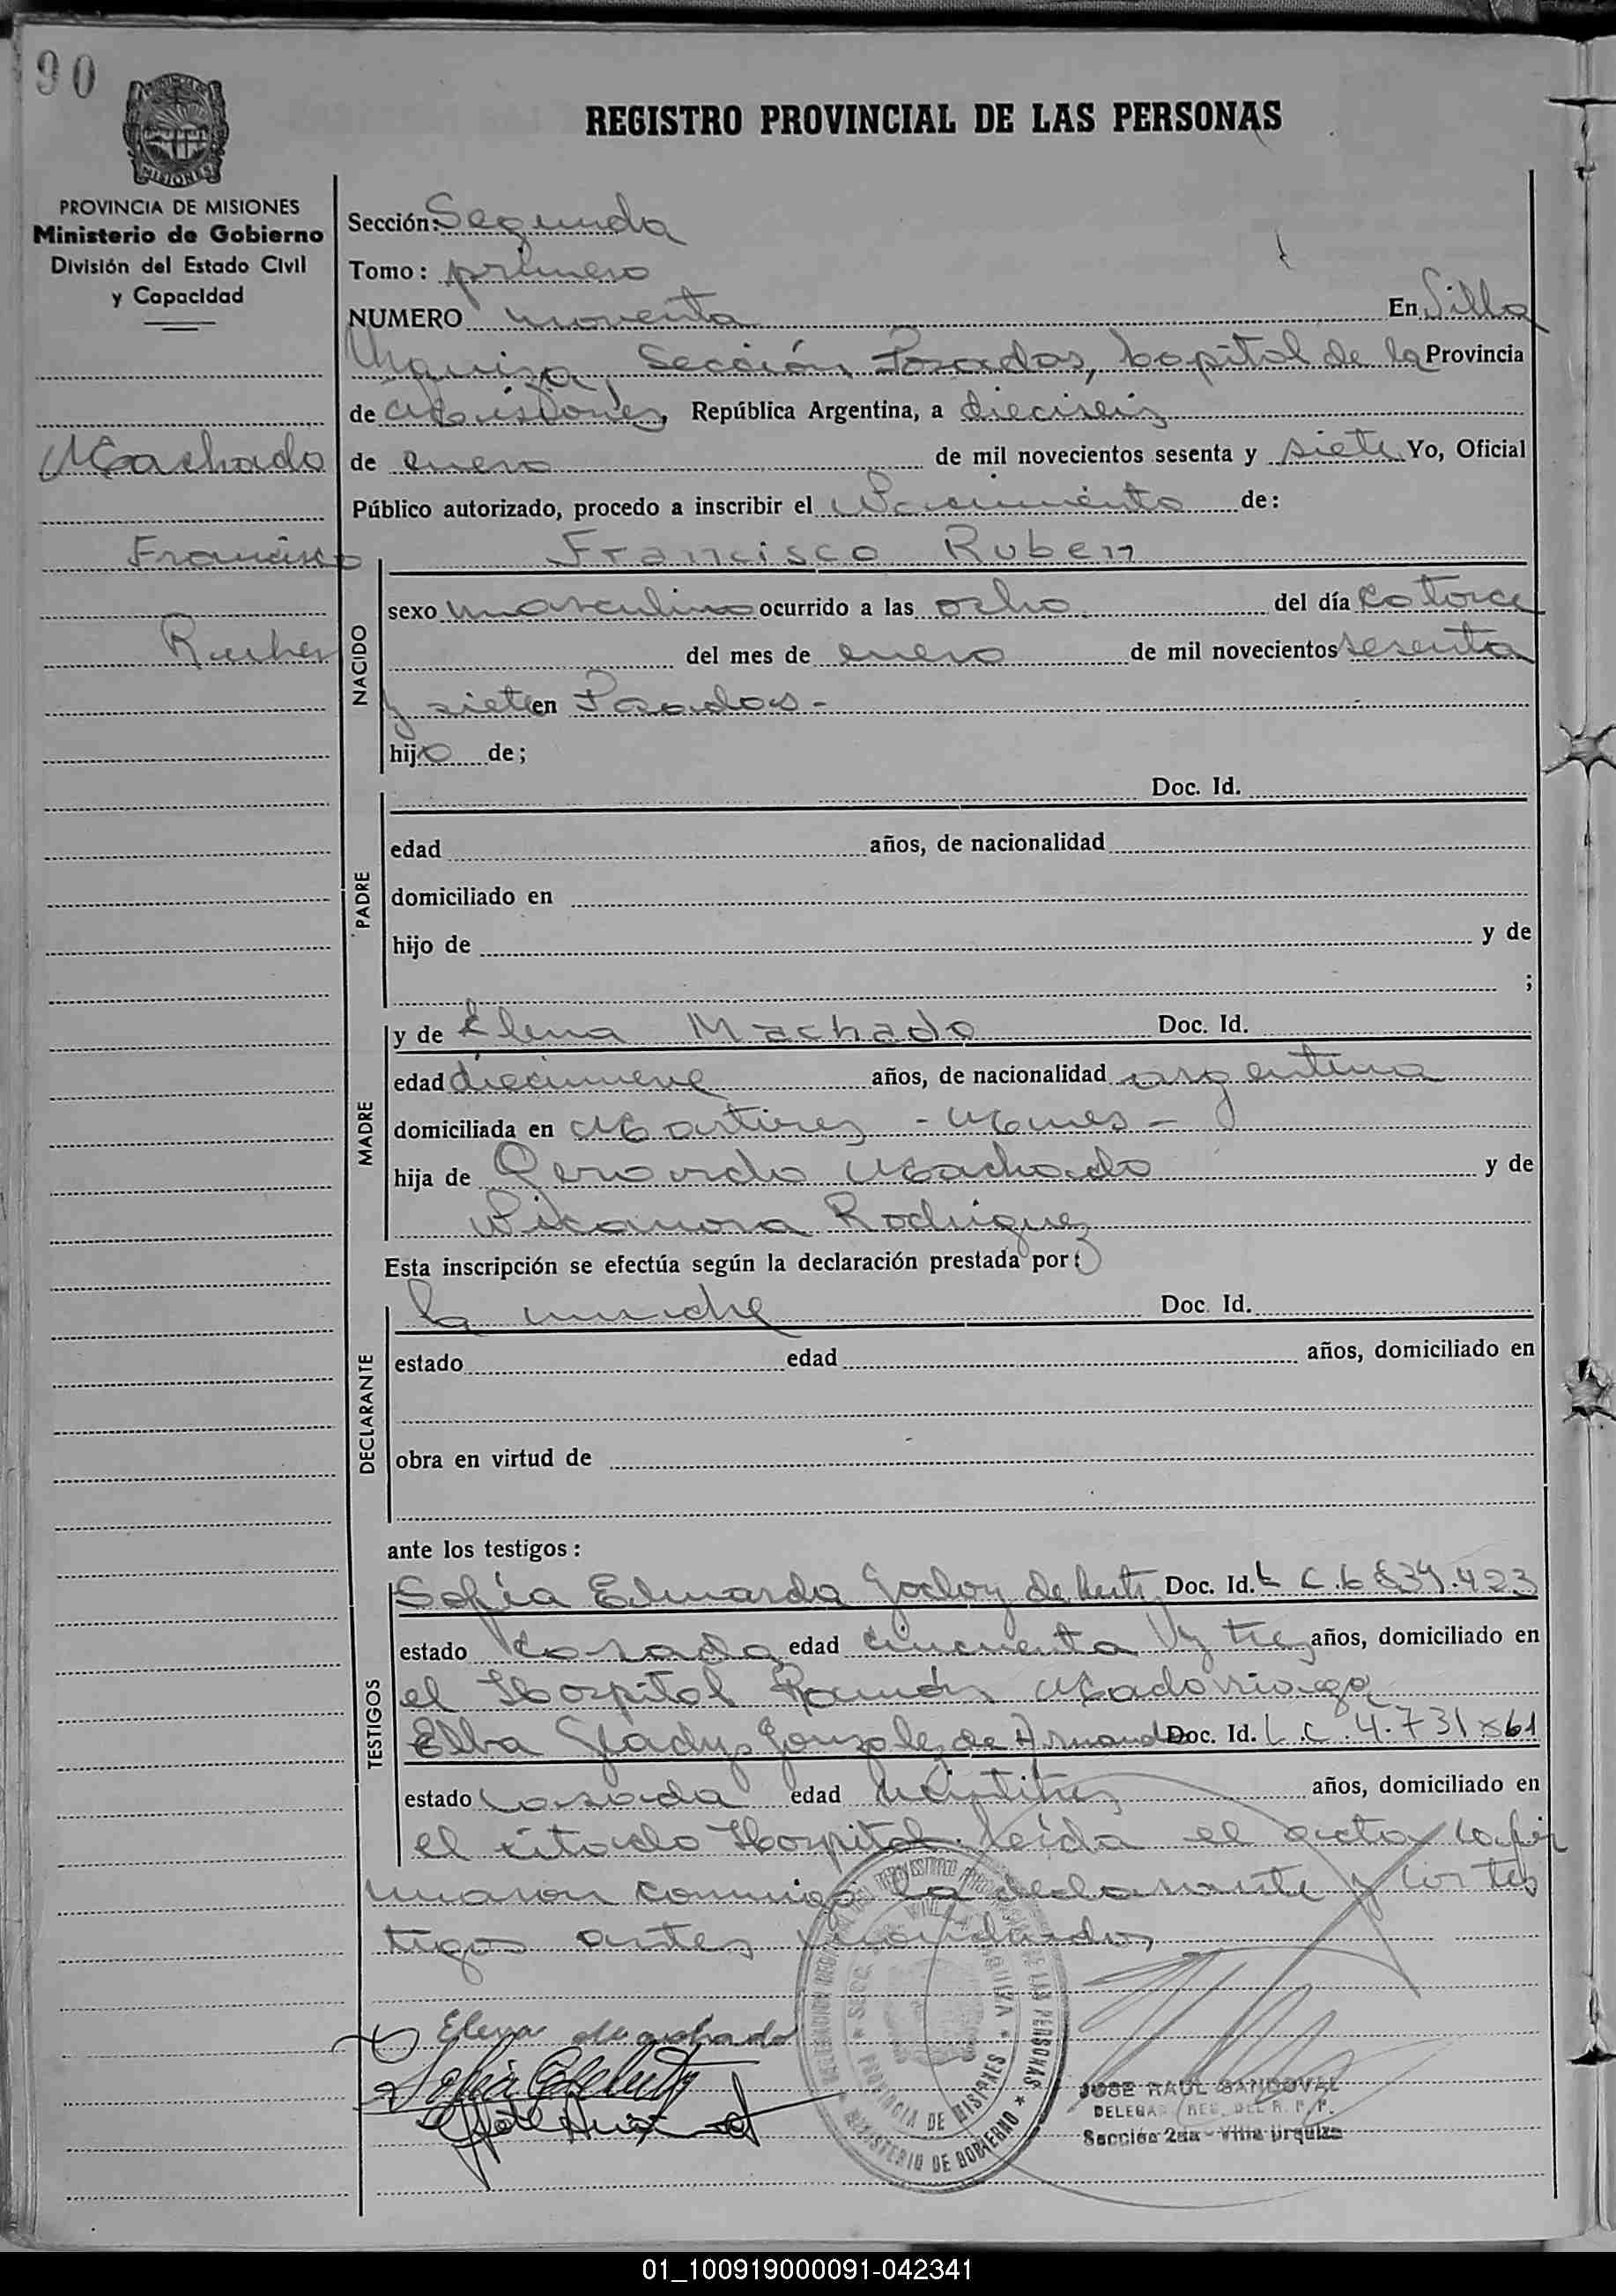 90
PROVINCIA DE MISIONES
MISIONES
REGISTRO PROVINCIAL DE LAS PERSONAS
PROVINCIA DE MISIONES
Ministerio de Gobierno
División del Estado Civil
y Capacidad
Machado
Francisco
Ruben
Sección: Segunda
Tomo: primero
NUMERO noventa En Villa
Urquiza, Sección Posadas, Capital de la Provincia
de Misiones, República Argentina, a dieciseis
de enero de mil novecientos sesenta y siete Yo, Oficial
Público autorizado, procedo a inscribir el Nacimiento de:
Francisco Ruben
NACIDO
sexo masculino ocurrido a las ocho del día catorce
del mes de enero de mil novecientos sesenta
y siete en Posadas -
hijo de;
PADRE
Doc. Id.
edad años, de nacionalidad
domiciliado en
hijo de y de
;
MADRE
y de Elena Machado Doc. Id.
edad diecinueve años, de nacionalidad argentina
domiciliada en Martires - Mnes -
hija de Gerardo Machado y de
Nicanora Rodriguez
Esta inscripción se efectúa según la declaración prestada por:
DECLARANTE
la madre Doc. Id.
estado edad años, domiciliado en
obra en virtud de
ante los testigos:
TESTIGOS
Sofía Eduarda Godoy de Doc. Id. L C. 6 839.423
estado casada edad cincuenta y tres años, domiciliado en
el Hospital Ramón Madariaga
Elba Gladys Gonzalez de Doc. Id. L. C. 4.731
estado casada edad veintitres años, domiciliado en
el citado Hospital. Leída el acta la fir
maron conmigo la declarante y los tes
tigos antes
Elena Machado
PROVINCIA DE MISIONES
MINISTERIO DE GOBIERNO
JOSE RAUL SANDOVAL
DELEGADO REG. DEL R. P. P.
Sección 2da - Villa Urquiza
01_100919000091-042341